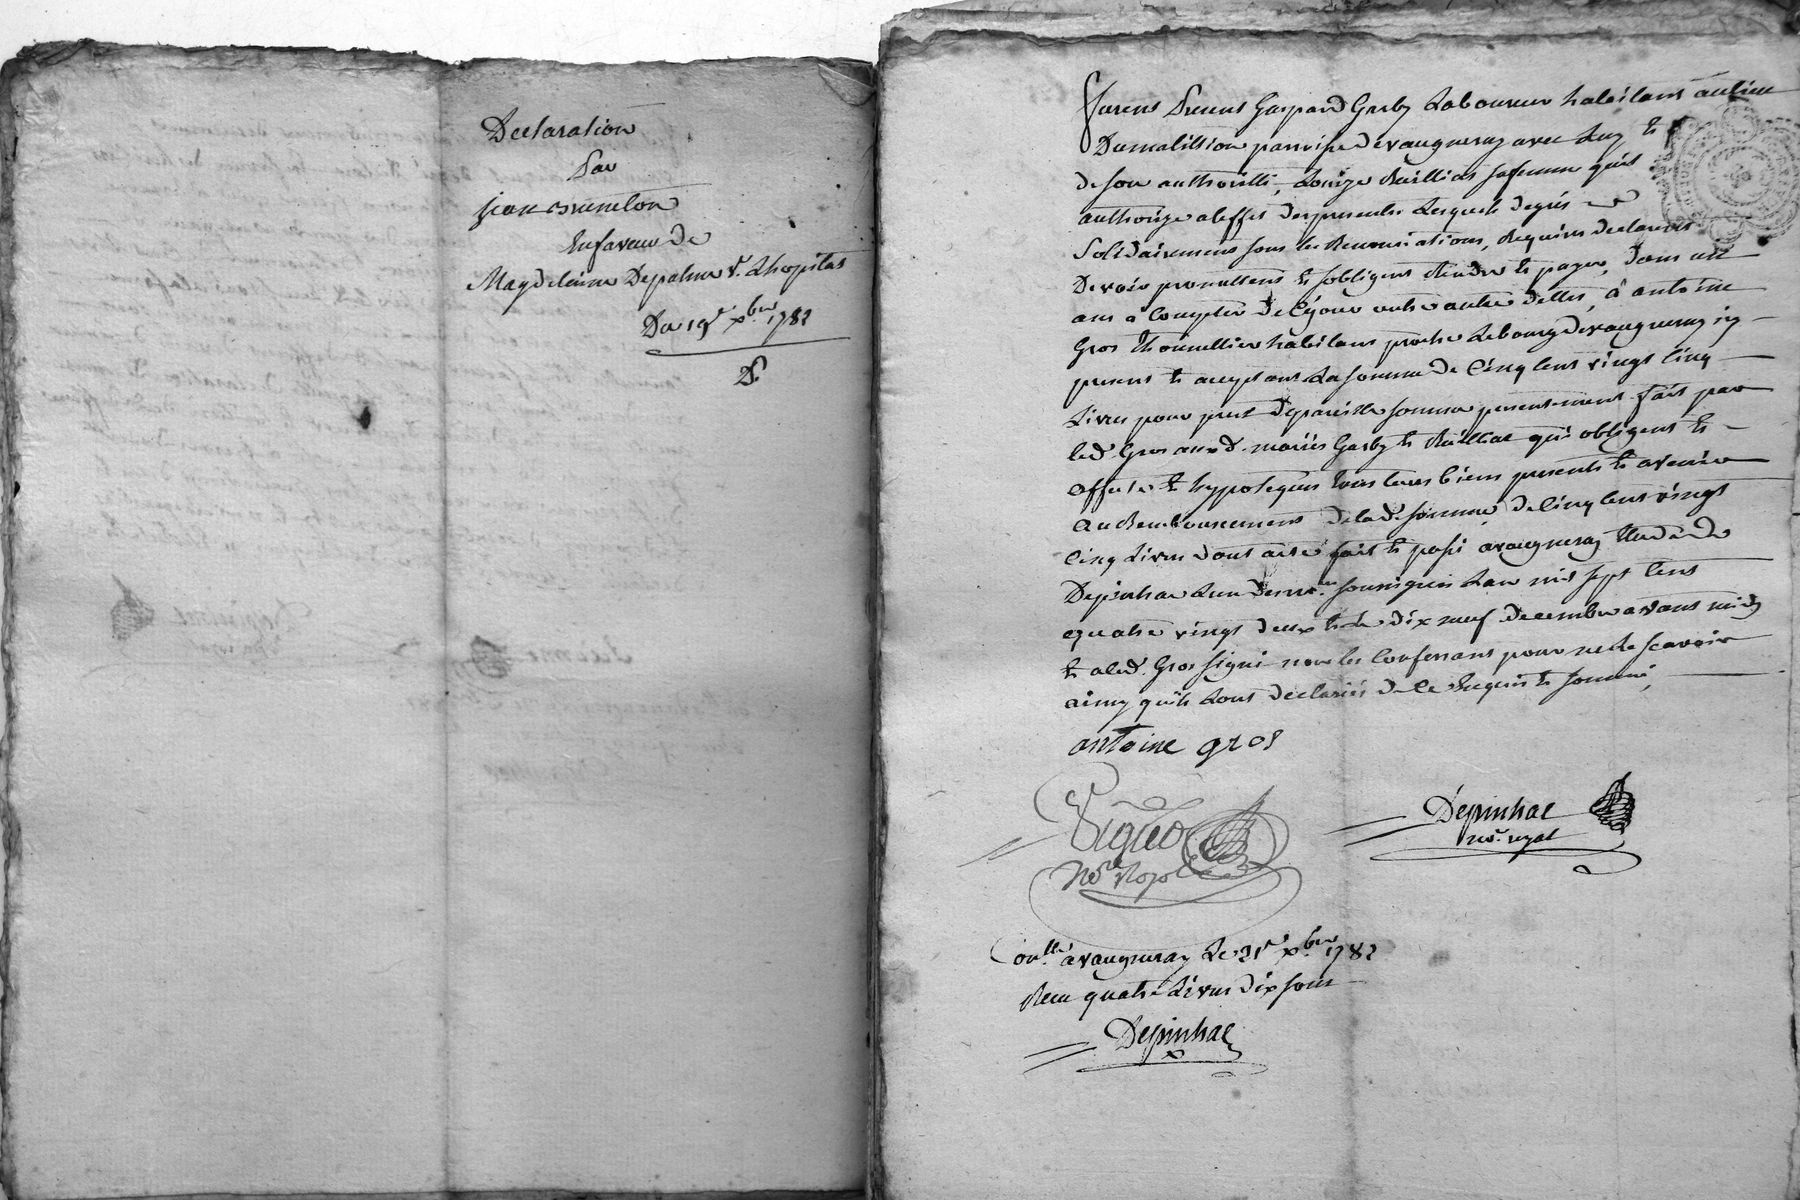 Declaration
Par
jean Bruneton
Enfaveur De
Magdeleinne Depalme v.e Lhopital
Du 19e xbre 1782
D.
furent Presens Gaspard Garby Laboureur habitans aulieu
Dumalission parroisse devaugneray avec Luy et
de son authoritté, Louize Reillias safemme quil
authorize aleffet despresentes Lesquels degrés
Solidairement sous les Renonciations Requises declarent
Devoir promettent et sobligent Rendre et payer, dans un
ans a Compter de Cejour entre autres dettes, à antoine
Gros thonnellier habitans proche Lebourg devaugneray icy
present et acceptans Lasomme de Cinq cens vingt Cinq
Livres pour prest depareille somme presentement fait par
led. Gros auxd. mariés Garby et Reillias qui obligent et
affectes et hypotequens tous leurs biens presents et avenir
au Remboursement delad. somme, de Cinq Cens vingt
Cinq Livres dont acte fait et passé avaugneray Etude de
Depinhac Lun desno.res soussignés Lan mil sept Cens
quatre vingt deux et le dix neuf decembre avant midy
et aled. Gros signé non les Confessans pour ne le scavoir
ainsy quils Lont declarés de Ce Enquis et sommé,
antoine gros
Viguo
No.re Royal
Depinhac
no.re royal
Con.llé avaugneray Le 21e xbre 1782
Reçu quatre Livres dix sous
Depinhac